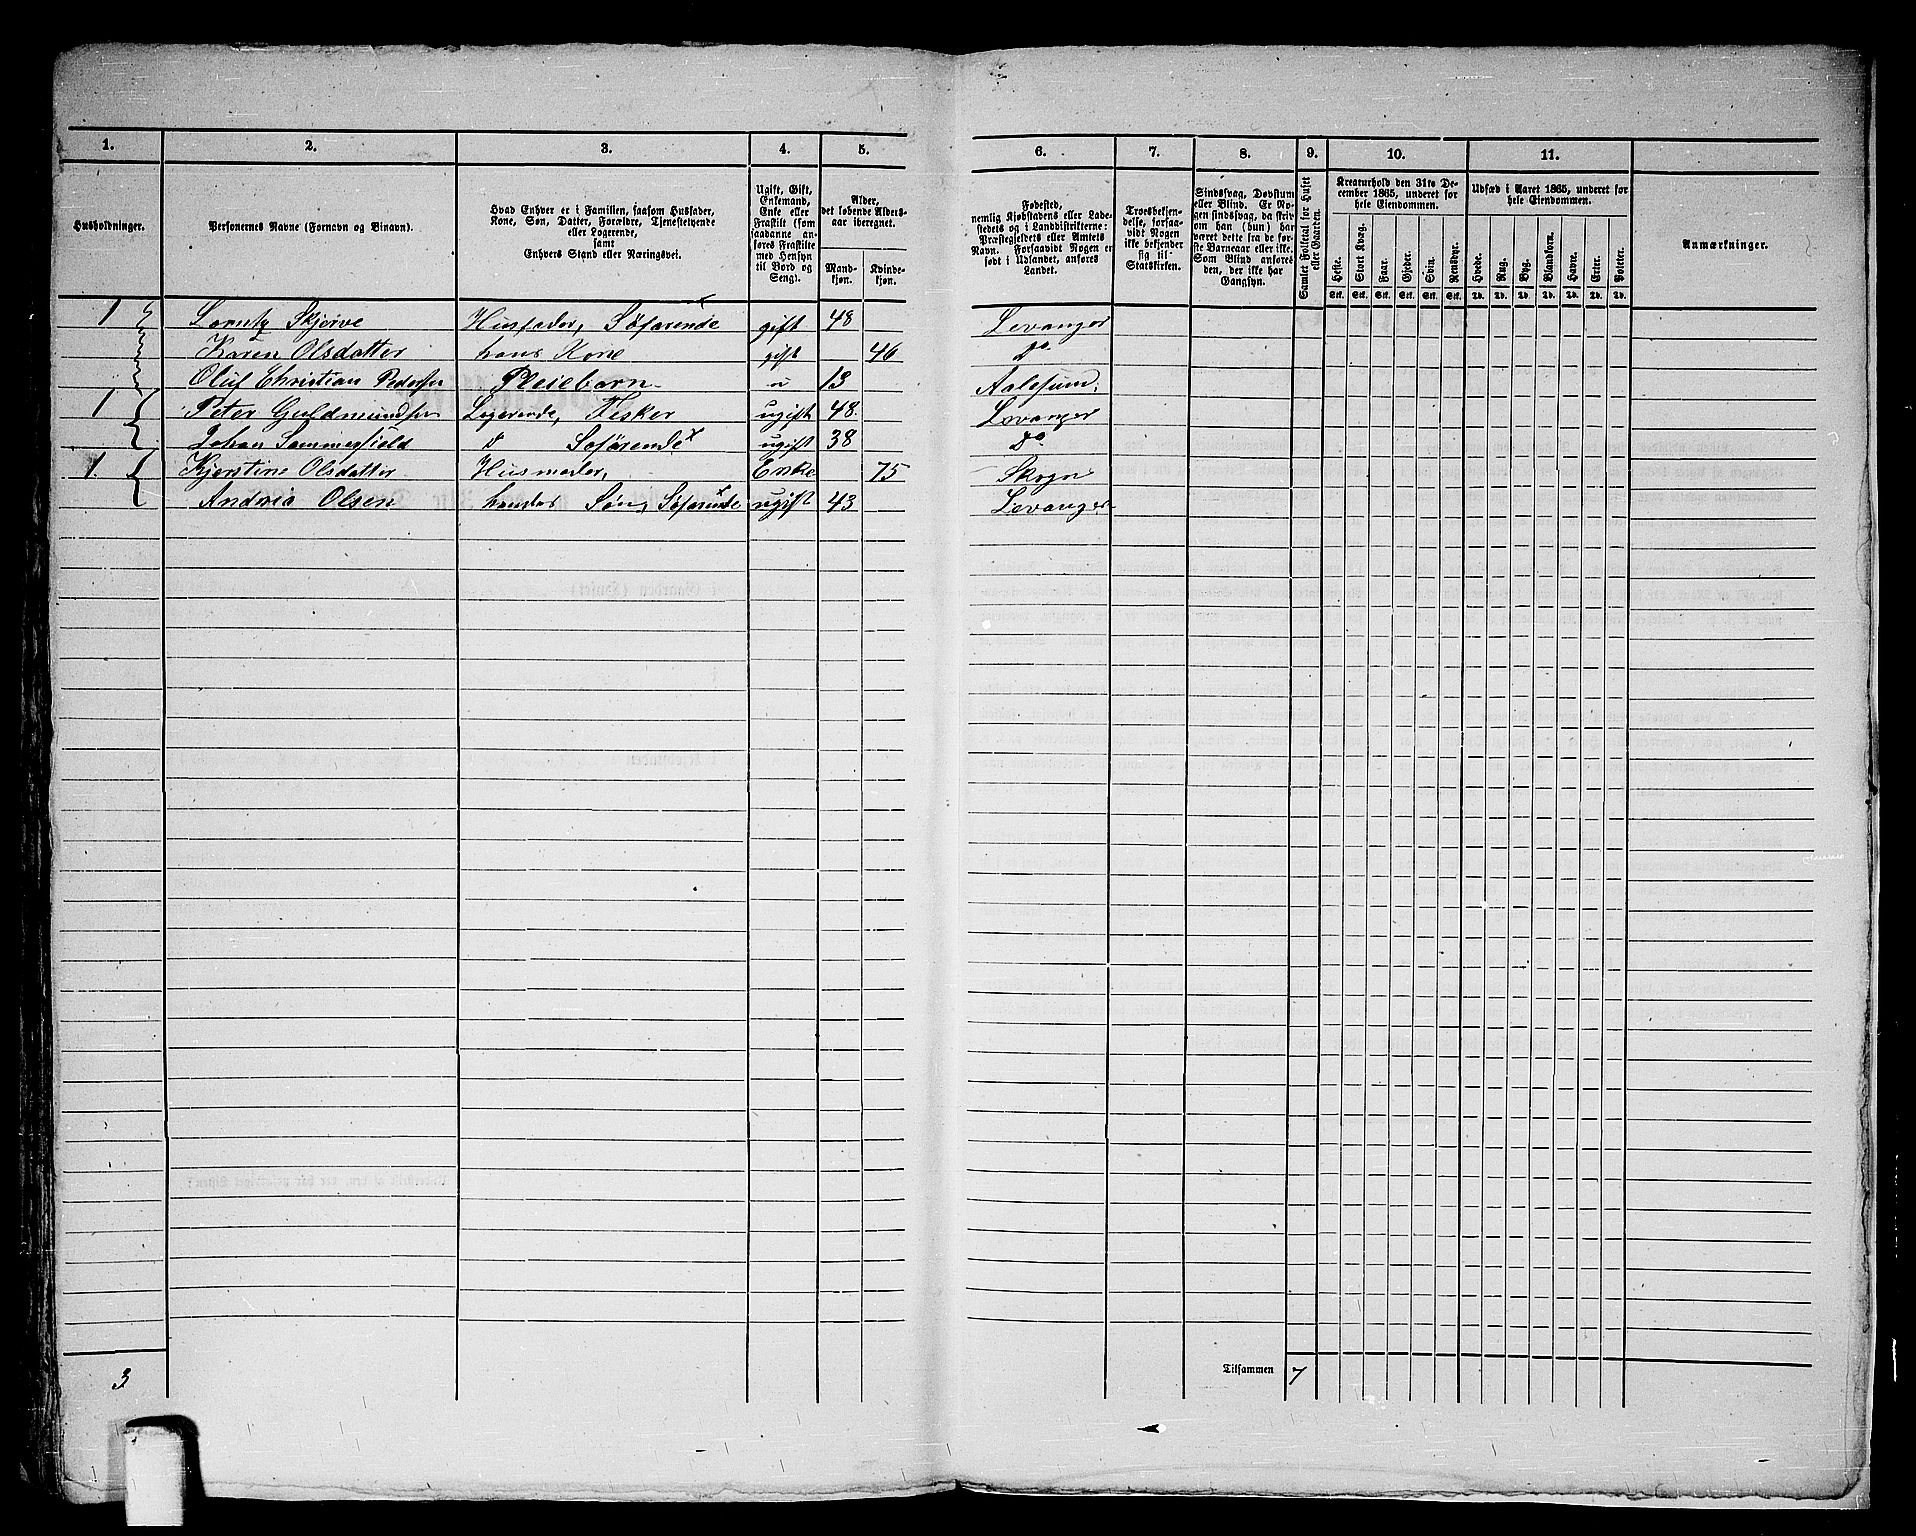 1. 2. 3. 4. 5. 6. 7. 8. 9. 10. 11.
Husholdninger.
Personernes Navne (Fornavn og Binavn).
Hvad Enhver er i Familien, saasom Husfader,
Kone, Søn, Datter, Forældre, Tjenestetyende
eller Logerende,
samt
Enhvers Stand eller Næringsvei.
Ugift, Gift,
Enkemand,
Enke eller
Fraskilt (som
saadanne an-
føres Fraskilte
med Hensyn
til Bord og
Seng).
Alder,
det løbende Alders-
aar iberegnet.
Mand-
kjøn.
Kvinde-
kjøn.
Fødested,
nemlig Kjøbstadens eller Lade-
stedets og i Landdistrikterne:
Præstegjeldets eller Amtets
Navn. Forsaavidt Nogen er
født i Udlandet, anføres
Landet.
Troesbekjen-
delse, forsaa-
vidt Nogen
ikke bekjender
sig til
Statskirken.
Sindssvag, Døvstum
eller Blind. Er No-
gen sindssvag, da skriv
om han (hun) har
været dette fra de før-
ste Barneaar eller ikke.
Som Blind anføres
den, der ikke har
Gangsyn.
Samlet Folketal for Huset
eller Gaarden.
Kreaturhold den 31te De-
cember 1865, underet for
hele Eiendommen.
Heste. Stort Kvæg. Faar. Gjeder. Svin. Rensdyr.
Stk. Stk. Stk. Stk. Stk. Stk.
Udsæd i Aaret 1865, underet for
hele Eiendommen.
Hvede. Rug. Byg. Blandkorn. Havre. Erter. Poteter.
Td. Td. Td. Td. Td. Td. Td.
Anmærkninger.
1 Lorntz Skjerve Husfader, Søfarende gift 48 Levanger
Karen Olsdatter hans Kone gift 46 do
Oluf Christian Pedersen Pleiebarn u 13 Aalesund,
1 Peter Guldmundsen Logerende, Fisker ugift 48. Levanger
Johan Sommerfield d Søfarende ugift 38 do.
1. Kjerstine Olsdatter Husmoder, Enke 75 Skogn
Andria Olsen hendes Søn, Søfarende ugift 43 Levanger
3 Tilsammen 7